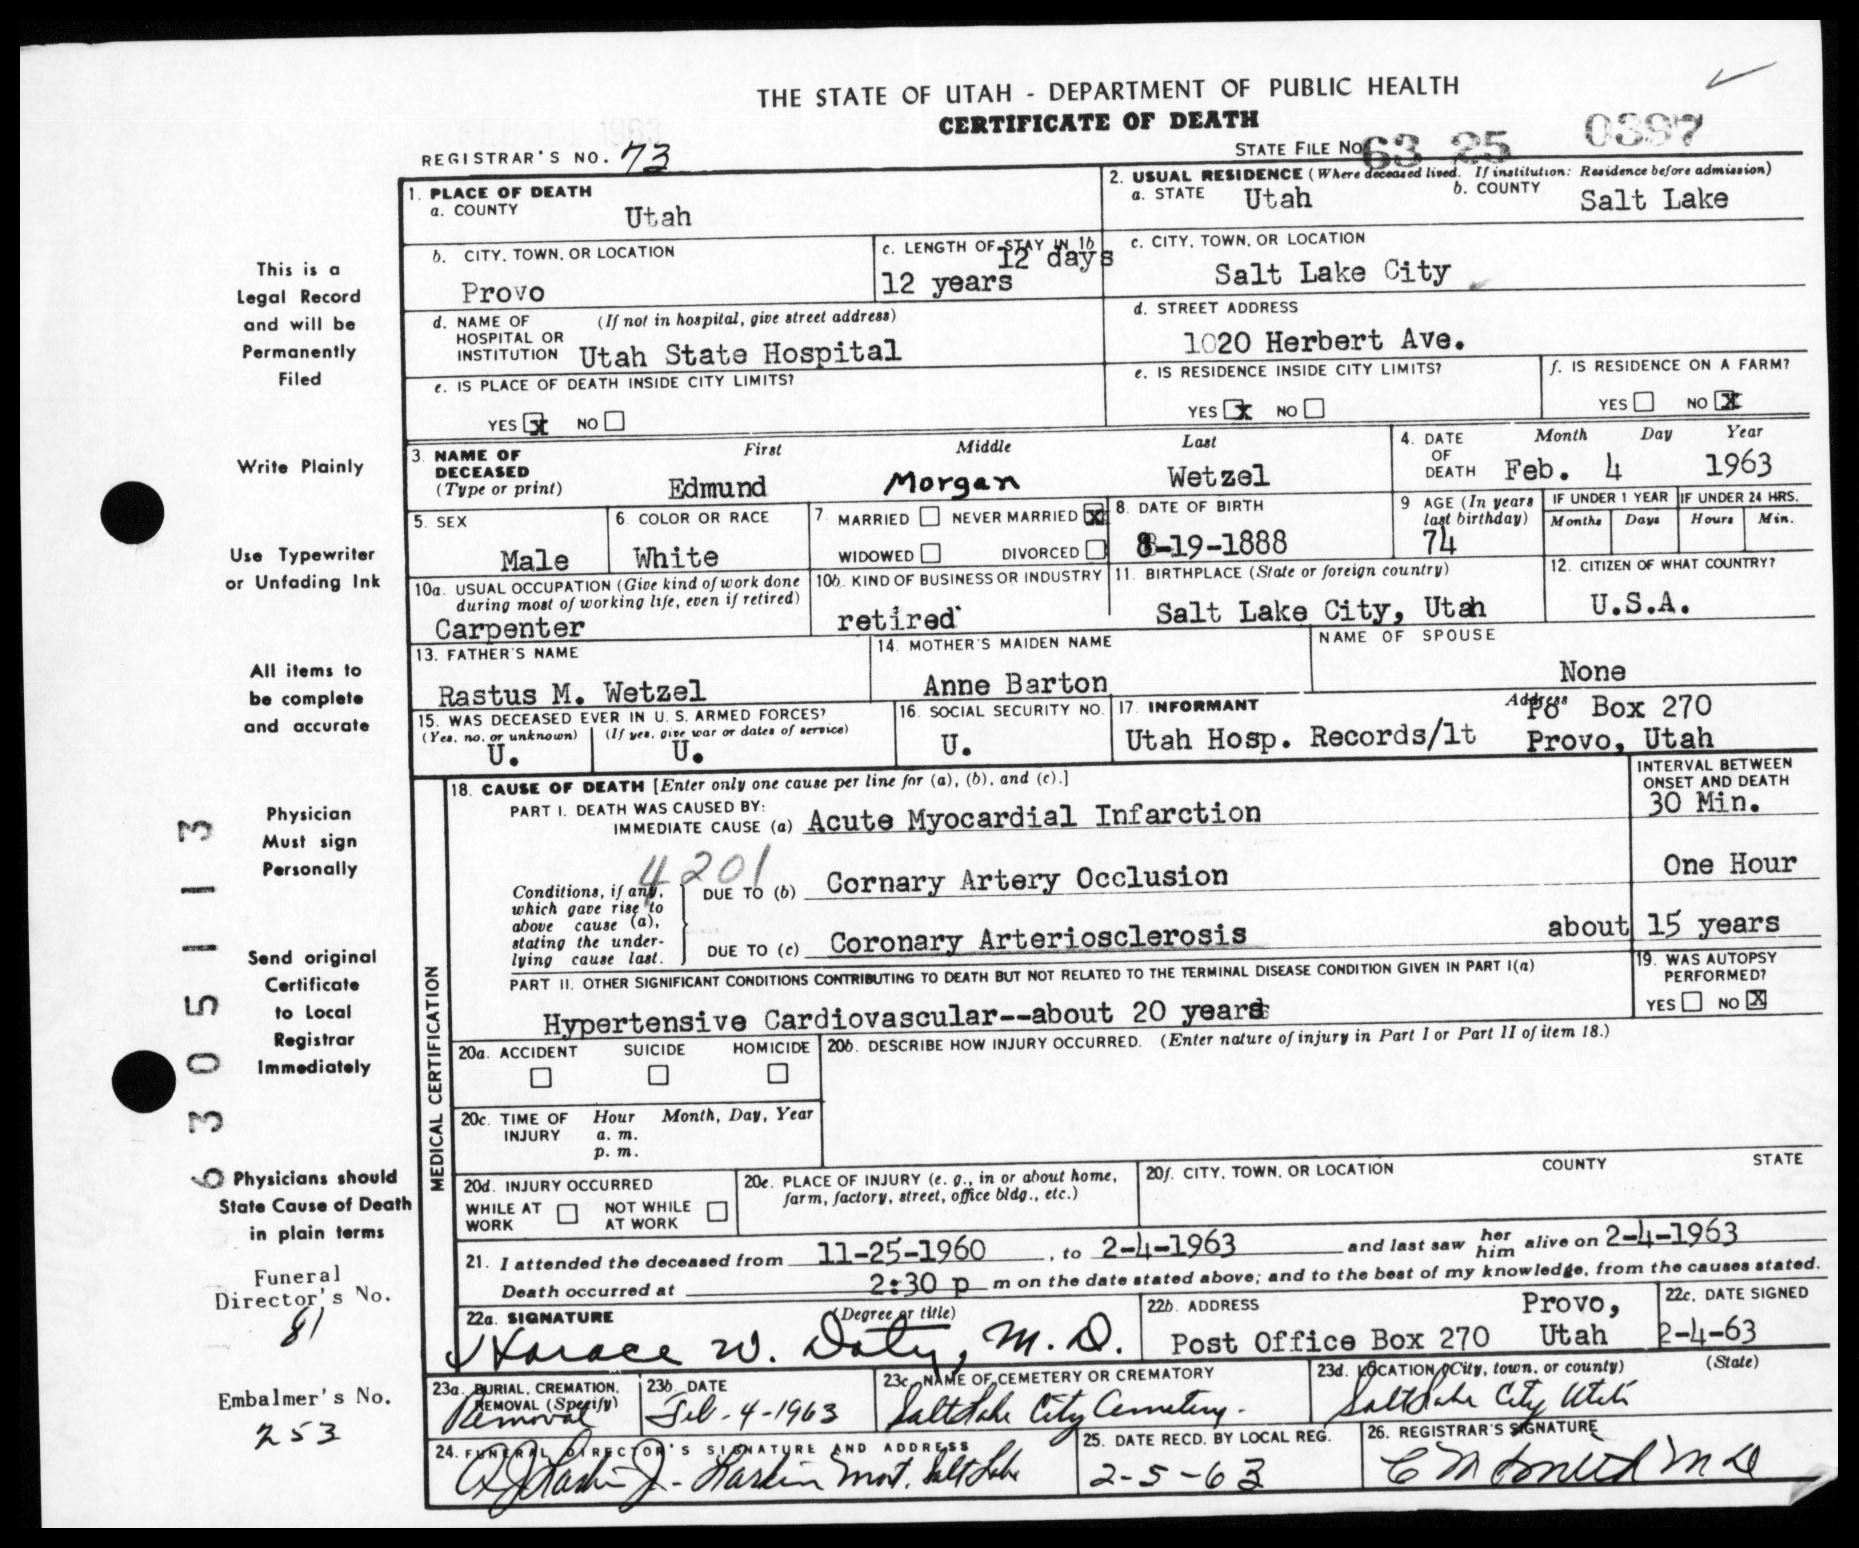 THE STATE OF UTAH - DEPARTMENT OF PUBLIC HEALTH
CERTIFICATE OF DEATH
REGISTRAR'S NO. 73
STATE FILE NO. 63 25 0397
This is a
Legal Record
and will be
Permanently
Filed
Write Plainly
Use Typewriter
or Unfading Ink
All items to
be complete
and accurate
Physician
Must sign
Personally
Send original
Certificate
to Local
Registrar
Immediately
Physicians should
State Cause of Death
in plain terms
Funeral
Director's No.
81
Embalmer's No.
253
6305113
1. PLACE OF DEATH
a. COUNTY
Utah
2. USUAL RESIDENCE (Where deceased lived. If institution: Residence before admission)
a. STATE Utah b. COUNTY Salt Lake
b. CITY, TOWN, OR LOCATION
Provo
c. LENGTH OF STAY IN 1b
12 days
12 years
c. CITY, TOWN, OR LOCATION
Salt Lake City
d. NAME OF (If not in hospital, give street address)
HOSPITAL OR
INSTITUTION Utah State Hospital
d. STREET ADDRESS
1020 Herbert Ave.
e. IS PLACE OF DEATH INSIDE CITY LIMITS?
YES x NO
e. IS RESIDENCE INSIDE CITY LIMITS?
YES x NO
f. IS RESIDENCE ON A FARM?
YES NO x
3. NAME OF
DECEASED
(Type or print)
First Middle Last
Edmund Morgan Wetzel
4. DATE
OF
DEATH
Month Day Year
Feb. 4 1963
5. SEX
Male
6. COLOR OR RACE
White
7. MARRIED NEVER MARRIED x
WIDOWED DIVORCED
8. DATE OF BIRTH
8-19-1888
9 AGE (In years
last birthday)
74
IF UNDER 1 YEAR
Months Days
IF UNDER 24 HRS.
Hours Min.
10a. USUAL OCCUPATION (Give kind of work done
during most of working life, even if retired)
Carpenter
10b. KIND OF BUSINESS OR INDUSTRY
retired
11. BIRTHPLACE (State or foreign country)
Salt Lake City, Utah
12. CITIZEN OF WHAT COUNTRY?
U.S.A.
13. FATHER'S NAME
Rastus M. Wetzel
14. MOTHER'S MAIDEN NAME
Anne Barton
NAME OF SPOUSE
None
15. WAS DECEASED EVER IN U. S. ARMED FORCES?
(Yes, no, or unknown) (If yes, give war or dates of service)
U. U.
16. SOCIAL SECURITY NO.
U.
17. INFORMANT
Utah Hosp. Records/lt
Address
PO Box 270
Provo, Utah
MEDICAL CERTIFICATION
18. CAUSE OF DEATH [Enter only one cause per line for (a), (b), and (c).]
INTERVAL BETWEEN
ONSET AND DEATH
PART I. DEATH WAS CAUSED BY:
IMMEDIATE CAUSE (a) Acute Myocardial Infarction 30 Min.
4201
Conditions, if any,
which gave rise to
above cause (a),
stating the under-
lying cause last.
DUE TO (b) Cornary Artery Occlusion One Hour
DUE TO (c) Coronary Arteriosclerosis about 15 years
PART II. OTHER SIGNIFICANT CONDITIONS CONTRIBUTING TO DEATH BUT NOT RELATED TO THE TERMINAL DISEASE CONDITION GIVEN IN PART I(a)
Hypertensive Cardiovascular--about 20 years
19. WAS AUTOPSY
PERFORMED?
YES NO X
20a. ACCIDENT SUICIDE HOMICIDE
20b. DESCRIBE HOW INJURY OCCURRED. (Enter nature of injury in Part I or Part II of item 18.)
20c. TIME OF Hour Month, Day, Year
INJURY a. m.
p. m.
20d. INJURY OCCURRED
WHILE AT NOT WHILE
WORK AT WORK
20e. PLACE OF INJURY (e. g., in or about home,
farm, factory, street, office bldg., etc.)
20f. CITY, TOWN, OR LOCATION COUNTY STATE
21. I attended the deceased from 11-25-1960, to 2-4-1963 and last saw her him alive on 2-4-1963
Death occurred at 2:30 p m on the date stated above; and to the best of my knowledge, from the causes stated.
22a. SIGNATURE (Degree or title)
Horace W. Doty, M.D.
22b. ADDRESS Provo,
Post Office Box 270 Utah
22c. DATE SIGNED
2-4-63
23a. BURIAL, CREMATION,
REMOVAL (Specify)
Removal
23b. DATE
Feb. 4-1963
23c. NAME OF CEMETERY OR CREMATORY
Salt Lake City Cemetery.
23d. LOCATION (City, town, or county) (State)
Salt Lake City Utah
24. FUNERAL DIRECTOR'S SIGNATURE AND ADDRESS
Larkin Mort. Salt Lake
25. DATE RECD. BY LOCAL REG.
2-5-63
26. REGISTRAR'S SIGNATURE
C M Smith M D